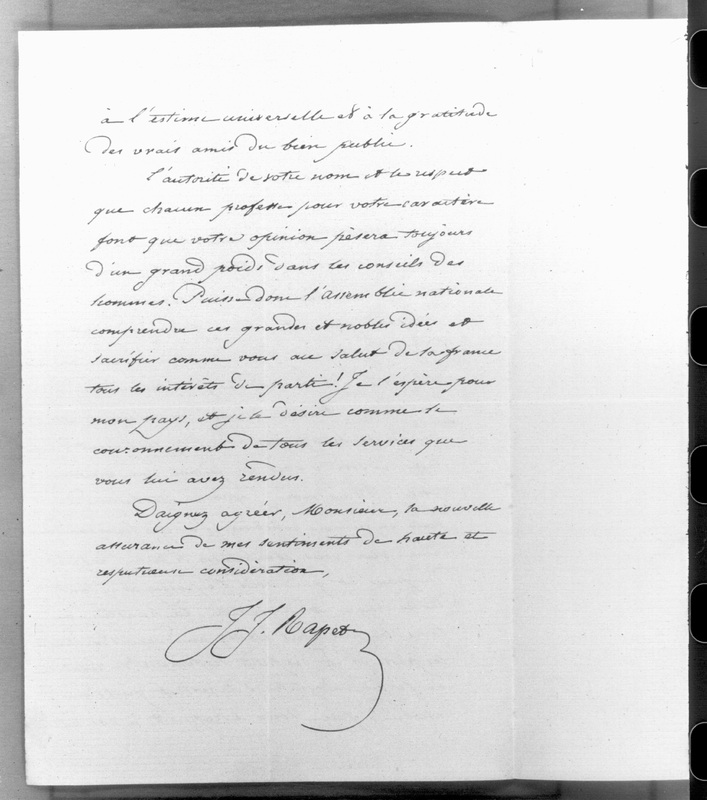 à l'estime universelle et à la gratitude
des vrais amis du bien public.
l'autorité de votre nom et le respect
que chacun professe pour votre caractère
font que votre opinion pèsera toujours
d'un grand poids dans les conseils des
hommes. Puisse donc l'assemblée nationale
comprendre ces grandes et nobles idées et
sacrifier comme vous au salut de la france
tous les intérêts de parti! Je l'espère pour
mon pays, et je le désire comme le
couronnement de tous les services que
vous lui avez rendus.
Daignez agréer, Monsieur, la nouvelle
assurance de mes sentiments de haute et
respectueuse considération,
J. J. Rapet